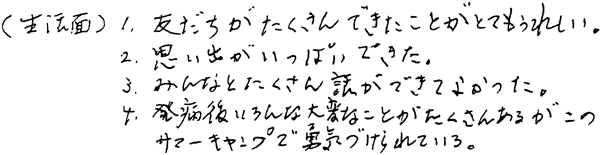 (生活面) 1. 友だちがたくさんできたことがとてもうれしい。
2. 思い出がいっぱいできた。
3. みんなとたくさん話ができてよかった。
4. 発病後いろんな大変なことがたくさんあるがこの
サマーキャンプで勇気づけられている。